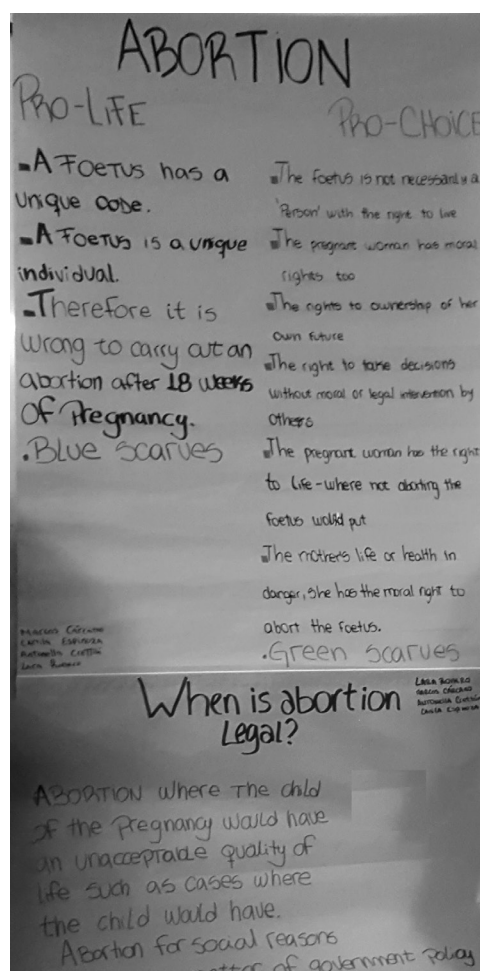 ABORTION
PRO-LIFE
▪A FOETUS has a
unique CODE.
▪A FOETUS is a unique
individual.
▪Therefore it is
wrong to carry out an
abortion after 18 weeks
OF Pregnancy.
.Blue scarves
PRO-CHOICE
▪The foetus is not necessarily a
'Person' with the right to live
▪The pregnant woman has moral
rights too
▪The rights to ownership of her
own future
▪The right to take decisions
without moral or legal intervention by
others
▪The pregnant woman has the right
to life-where not aborting the
foetus would put
The mother's life or health in
danger, she has the moral right to
abort the foetus.
.Green scarves
When is abortion
Legal?
ABORTION where The child
of the Pregnancy would have
an unacceptable quality of
life such as cases where
the child would have.
Abortion for social reasons
of government policy